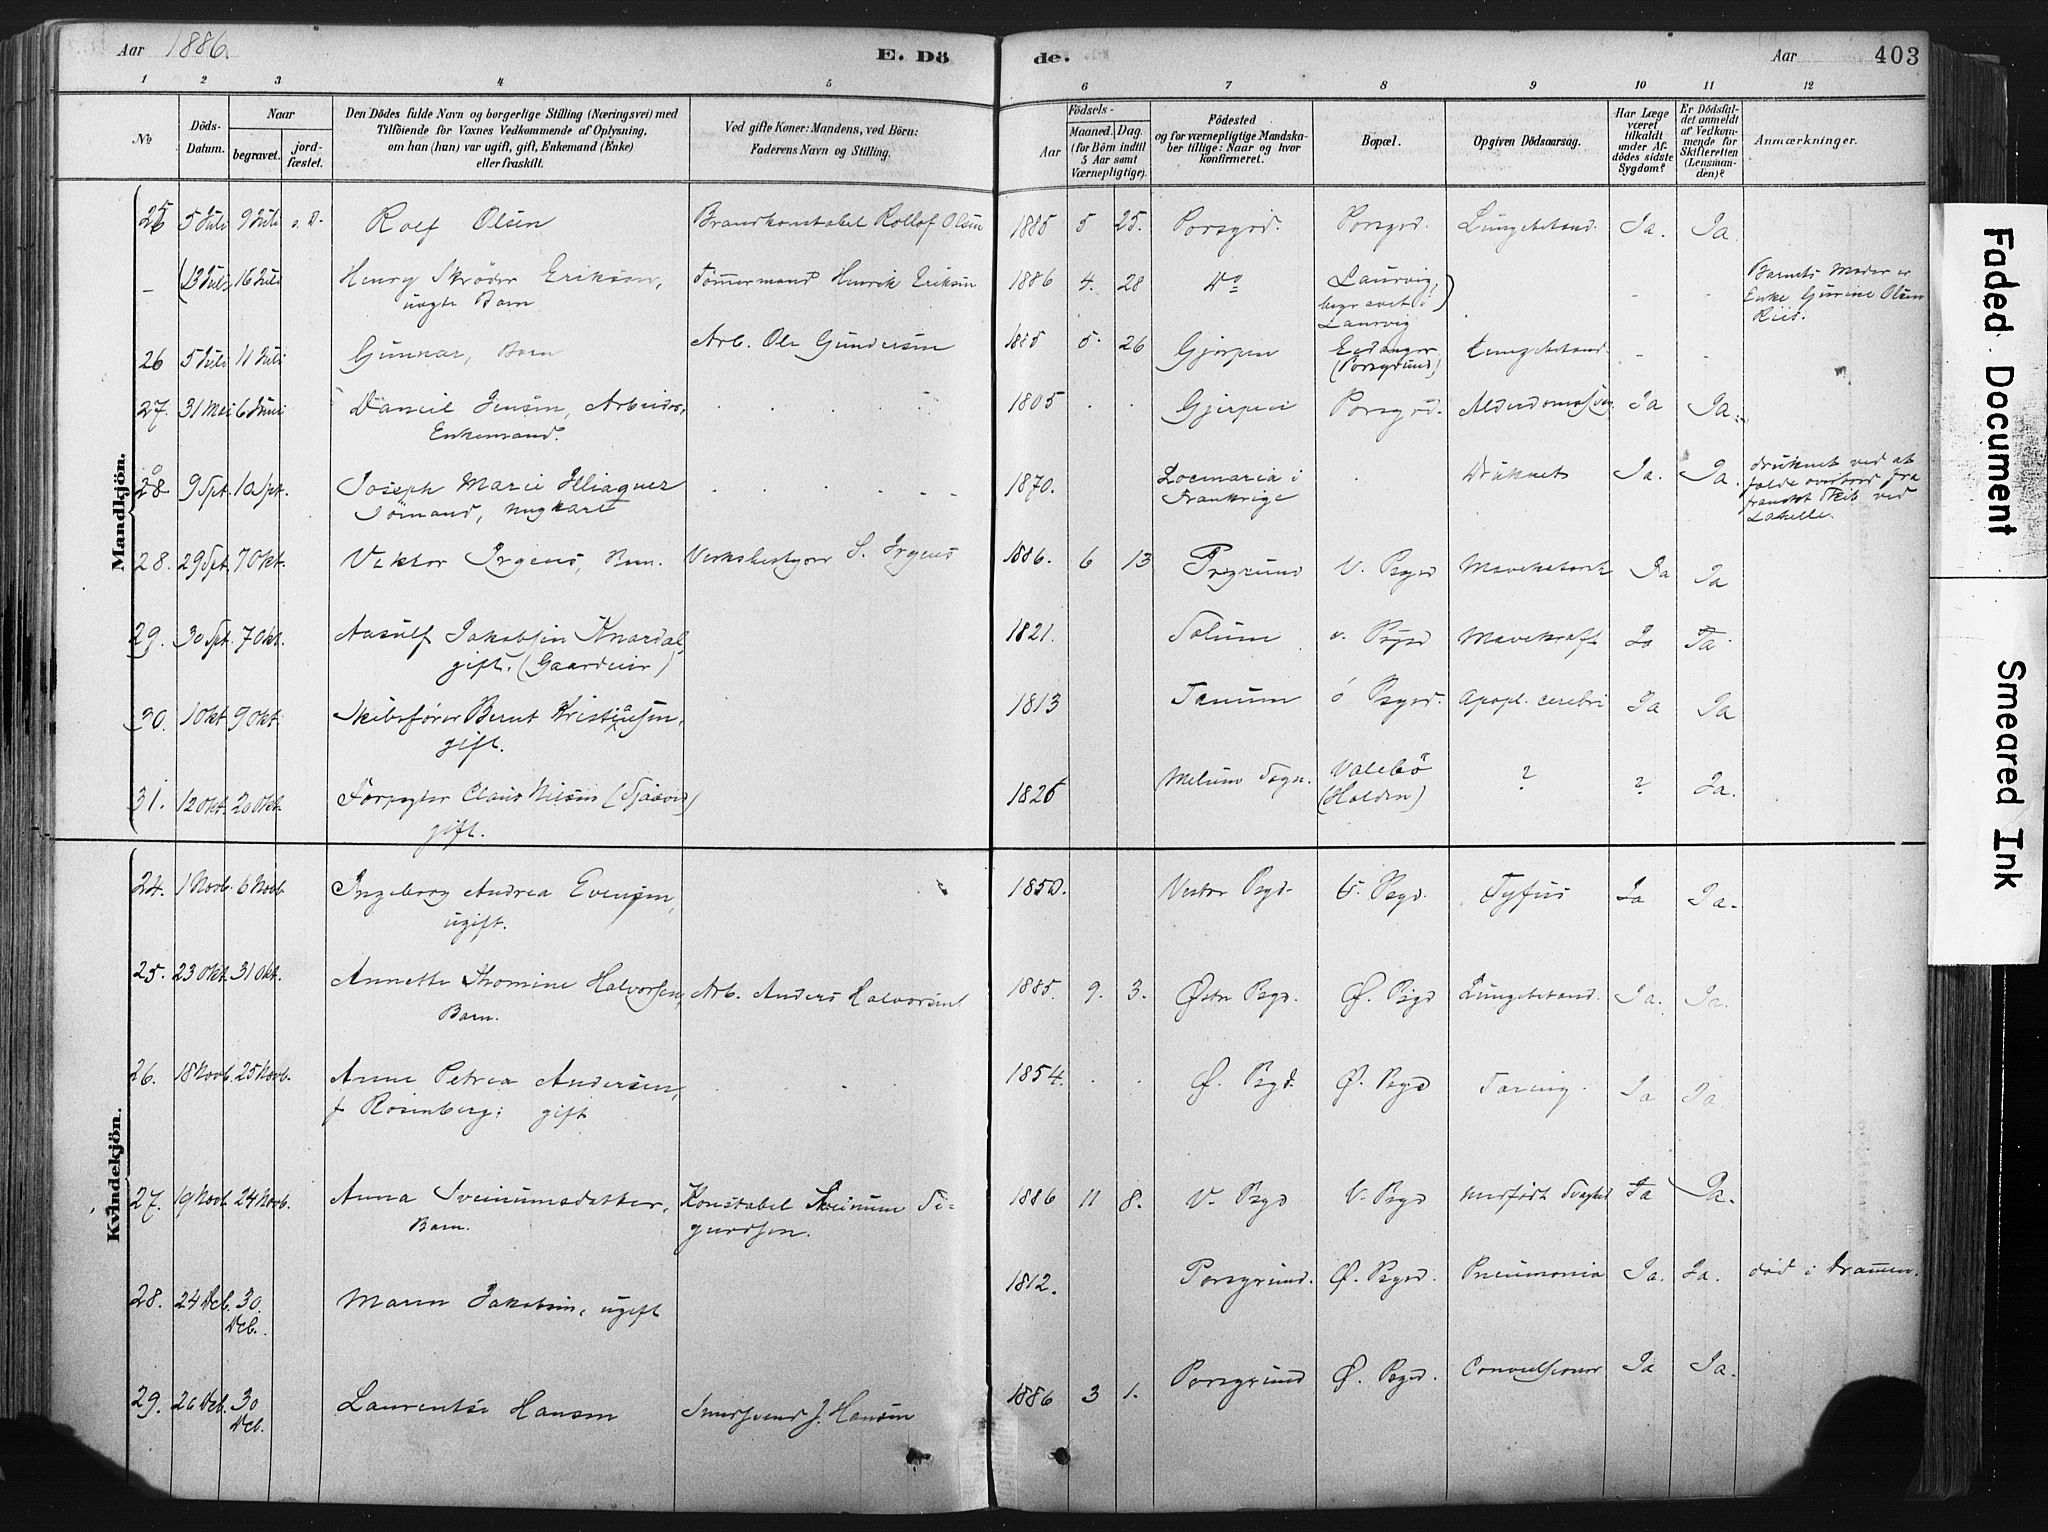 Aar 1886.
E. Dö
de.
Aar
403
1 2 3 4 5 6 7 8 9 10 11 12
No
Döds-Datum.
Naar
begravet.
jord-fæstet.
Den Dödes fulde Navn og borgerlige Stilling (Næringsvei) med
Tilföiende for Voxnes Vedkommende af Oplysning,
om han (hun) var ugift, gift, Enkemand (Enke)
eller fraskilt.
Ved gifte Koner: Mandens, ved Börn:
Faderens Navn og Stilling.
Födsels-
Aar
Maaned. Dag.
(for Börn indtil
5 Aar samt
Værnepligtige).
Födested
og for værnepligtige Mandska-
ber tillige: Naar og hvor
Konfirmeret.
Bopæl.
Opgiven Dödsaarsag.
Har Læge
været
tilkaldt
under Af-
dödes sidste
Sygdom?
Er Dödsfal-
det anmeldt
af Vedkom-
mende for
Skifteretten
(Lensman-
den)?
Anmærkninger.
Mandkjön.
25 5 Juli 9 Juli s. D. Rolf Olsen Brandkonstabel Rollof Olsen 1885 5 25. Porsgrd. Porsgrd. Lungebetænd. Ja. Ja
– (13 Juli 16 Juli Henry Skröder Eriksen, Tömmermand Henrik Eriksen 1886 4. 28 Do Laurvig, - - Barnets Moder er
uægte Barn begravet i Enke Gurine Olsen
Laurvig) Riis.
26 5 Juli 11 Juli Gunnar, Barn Arb. Ole Gundersen 1885 5. 26 Gjerpen Eidanger Lungebetænd - -
(Porsgrund)
27. 31 Mai 6 Juni Daniel Jensen, Arbeider, 1805 Gjerpen Porsgrd. Ja Ja.
Enkemand.
28 9 Spt. 10 Spt. Joseph Marie 1870. Locmaria i Druknet Ja. Ja. druknet ved at
Sömand, ungkarl Frankrige falde overbord fra
franskt Skib ved
28. 29 Spt. 7 Okt. Viktor Irgens, Barn. Verksbestyrer S. Irgens 1886. 6 13 Prsgrund V. Psgrd Ja Ja
29. 30 Spt. 7 Okt. Aasulf Jakobsen Knardal, 1821. Solum v. Psgrd Mavekræft Ja Ja
gift. (Gaardeier)
30. 1 Okt. 9 Okt. Skibsförer Bernt Kristiansen, 1813 Tanum ö Psgrd. Apopl. cerebri Ja Ja
gift.
31. 12 Okt. 20 Okt. Forpagter Claus Nilsen 1826 Melum Sogn. Valebö ? ? Ja.
gift. (Holden)
Kvindekjön.
24. 1 Novb. 6 Novb. Ingeborg Andrea Evensen, 1850. Vestre Psgd. V. Psgd. Tyfus Ja Ja.
ugift.
25. 23 Okt. 31 Okt. Annette Thomine Halvorsen, Arb. Anders Halvorsen 1885. 9. 3. Østre Psgd. Ø. Psgd Lungebetænd. Ja. Ja.
Barn.
26. 18 Novb. 25 Novb. Anne Petrea Andersen, 1854. Ø. Psgd. Ø. Psgd Tæring. Ja Ja
f. Rosenberg; gift
27. 19 Novb. 24 Novb. Anna Sveinumsdatter, Konstabel Sveinum Si- 1886 11 8. V. Psgd V. Psgd medfödt Svaghed Ja Ja.
Barn. gurdsen.
28. 24 Dcb. 30. Maren Jakobsen, ugift 1812. Porsgrund. Ø. Psgrd. Pneumonia Ja. Ja. död i Drammen.
Dcb.
29. 26 Dcb. 30 Laurentse Hansen Hansen 1886 3 1. Porsgrund Ø. Psgrd. Convulsioner Ja Ja.
Dcb.
Faded Document
Smeared Ink